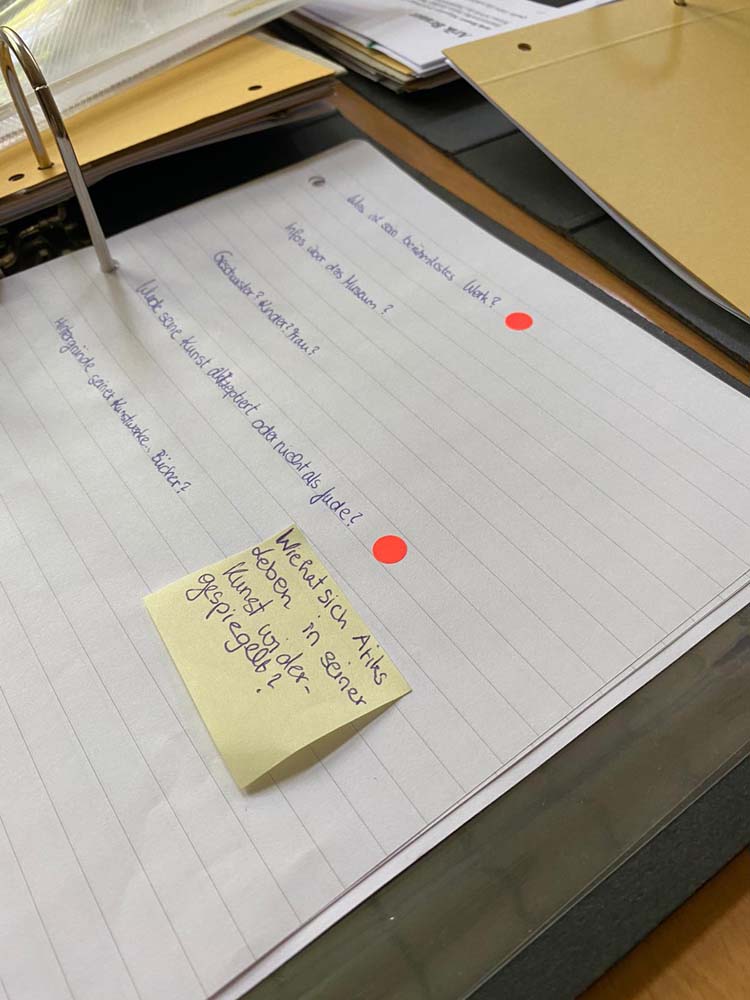 Arik Brauer
Was ist sein berühmtestes Werk?
Infos über das Museum?
Geschwister? Kinder? Frau?
Wurde seine Kunst akzeptiert oder nicht als Jude?
Hintergründe seiner Kunstwerke, Bücher?
Wie hat sich Ariks
Leben in seiner
Kunst wider-
gespiegelt?